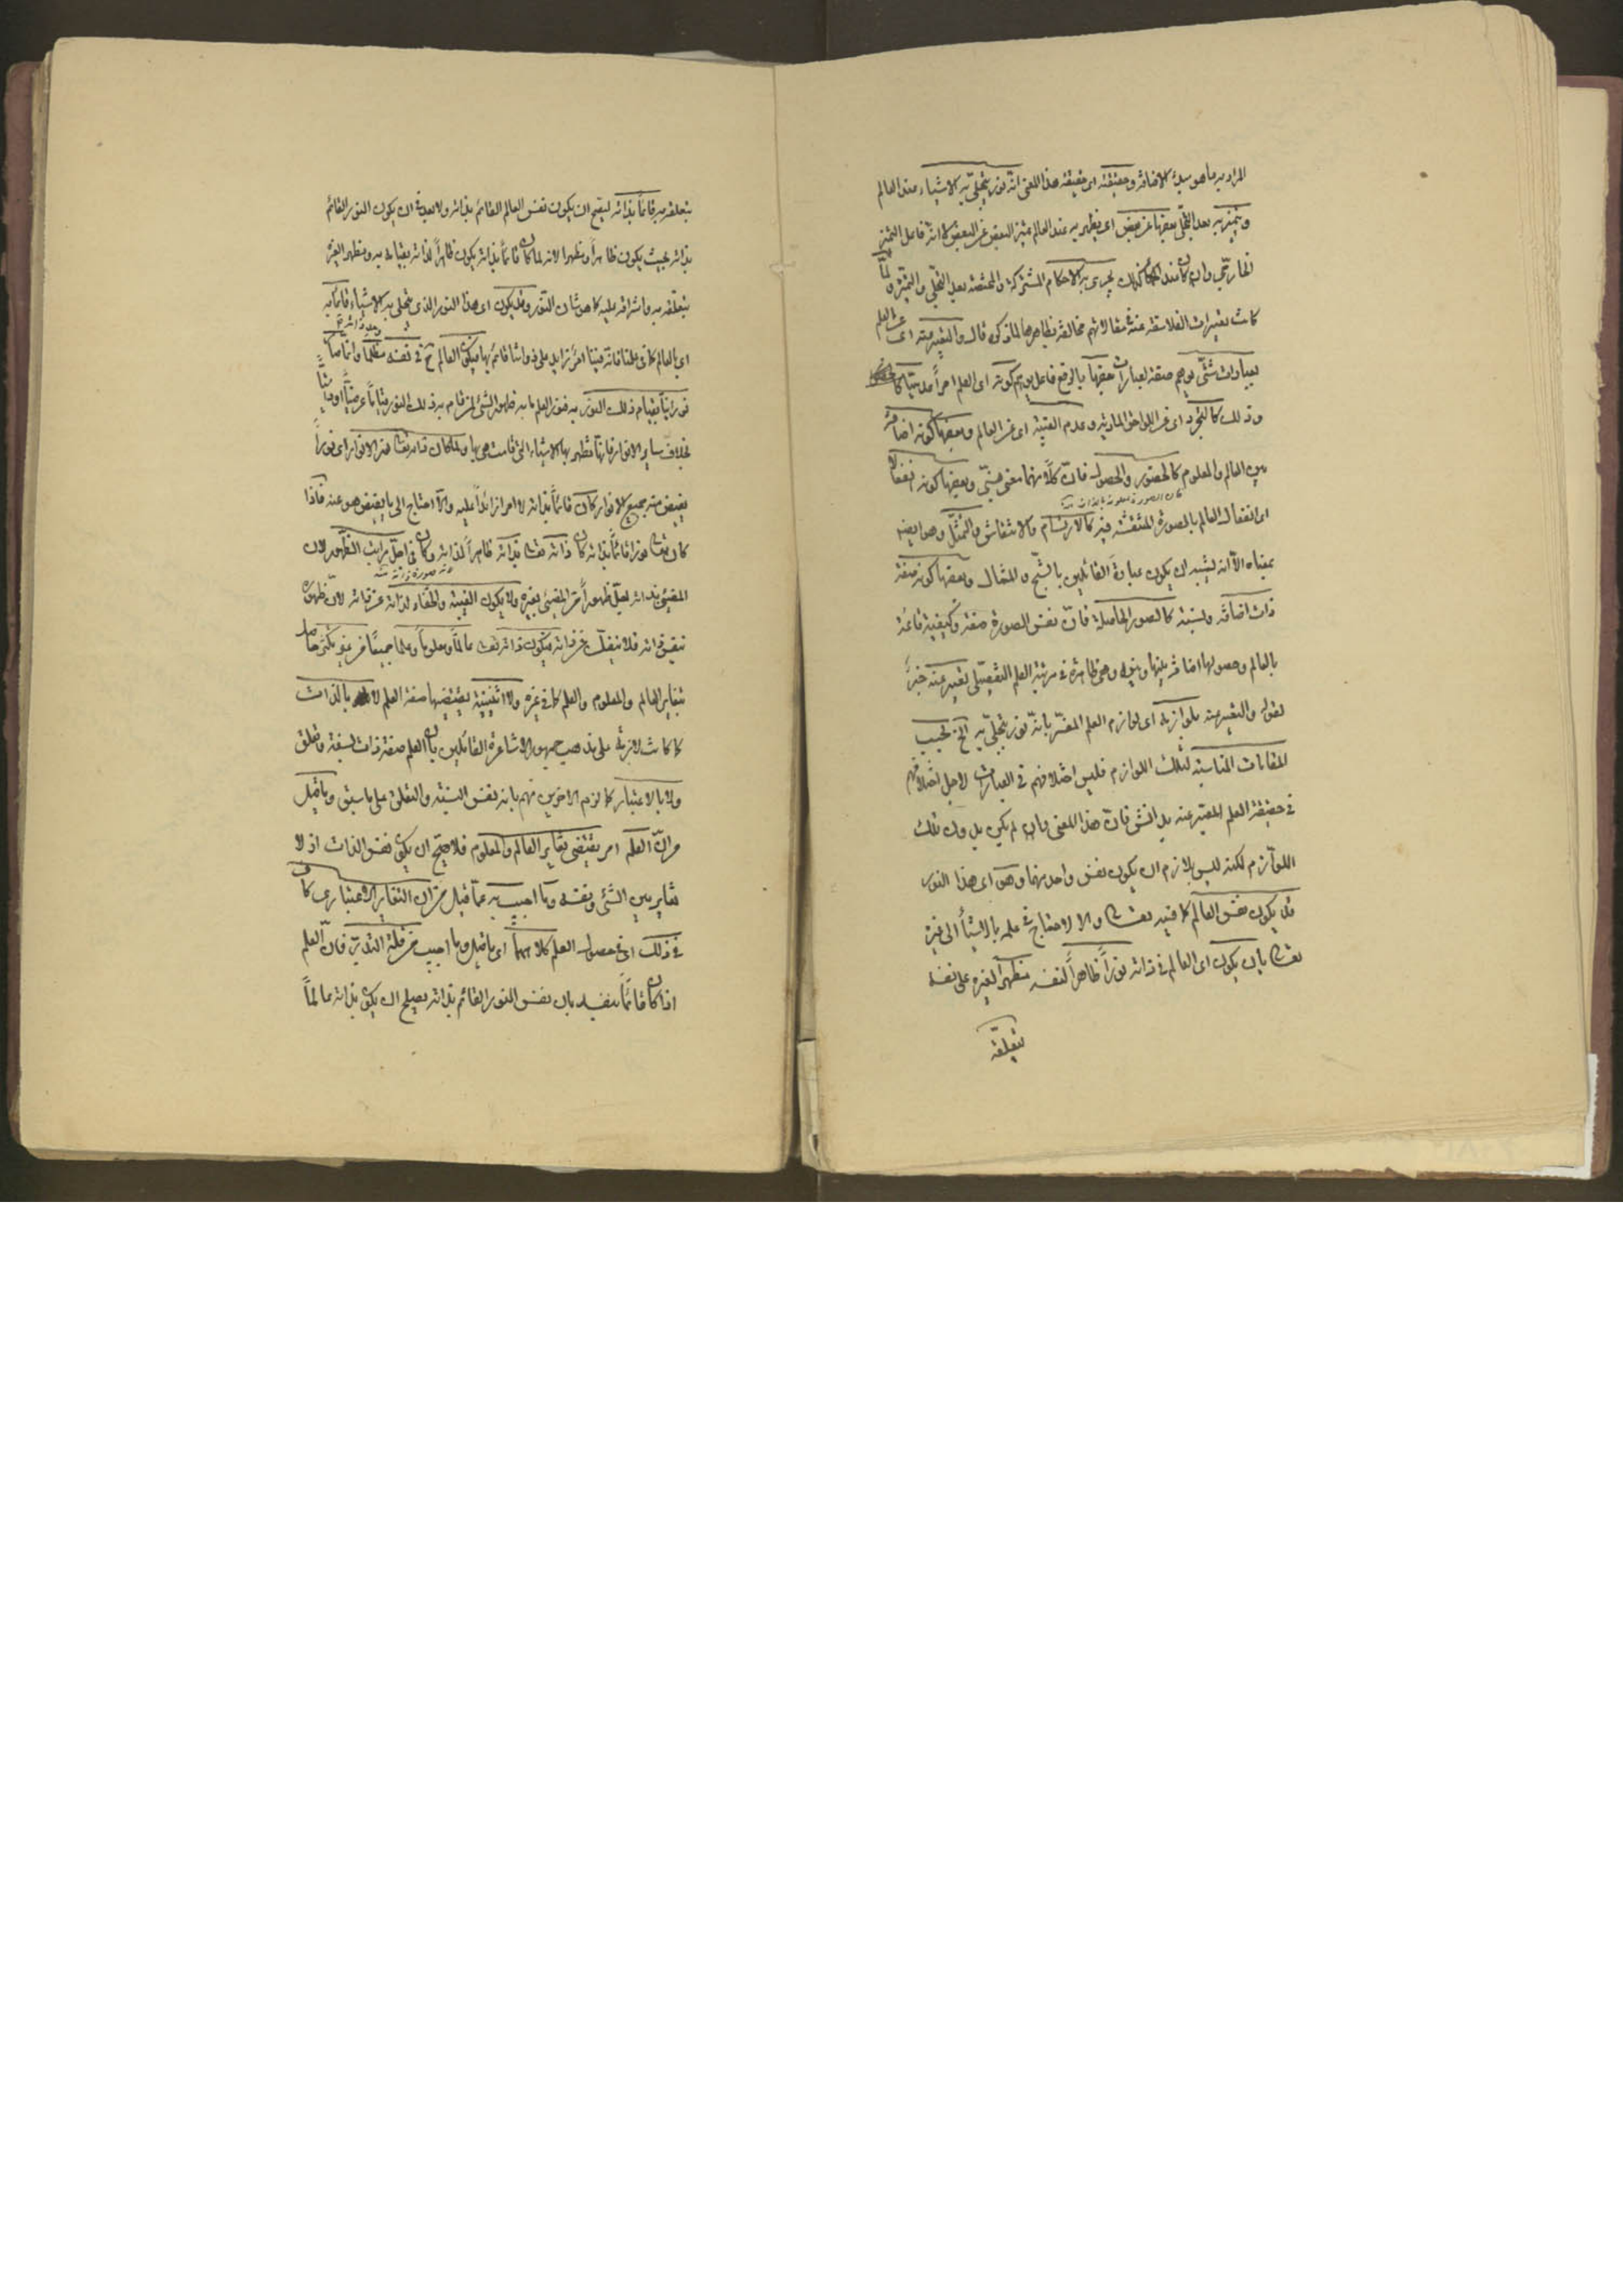 المراد به ما هو مبدء الاضافة وحقيقته اى حقيقة هذا المعنى انه نور يتجلى به الاشياء عند العالم
ويتميز به بعد التجلى بعضها عن بعض اى يظهر به عند العالم تميز البعض عن البعض لا انه فاعل التميز
الخارجى وان كان عند الحكماء كذلك يجرى به الاحكام المشتركة والمختصة بعد التجلى والتميز ولما
كانت تعبيرات الفلاسفة عنه فى مقالاتهم مخالفة بظاهرها لما ذكره قال والتعبير عنه اى عن العلم
بعبارات شتى يوهم صدقه لعبارات بعضها بالرفع فاعل يوهم كونه اى العلم امراً عدميّا كا
وذلك كالتجرد اى عن اللواحق المادية وعدم الغيبة اى عن العالم وبعضها كونه اضافة
بين العالم والمعلوم كالحضور والحصول فانّ كلّا منهما معنى نسبىّ وبعضها كونه انفعالا
اى انفعال العالم بالصورة المنتقشة فيه كالارتسام والانتقاش والتمثّل وهو ايضا
بمعناه الا انه يشبه ان يكون عبارة القائلين بالشبح والمثال وبعضها كونه صفة
ذات اضافة ونسبة كالصور الحاصلة فانّ نفس الصورة صفة وكيفية قائمة
بالعالم وحصولها اضافة بينها وبينه وهى ظاهرة فى مرتبة العلم التفصيلى تعبير عنه خبرُ
لقوله والتعبير عنه بلوازمه اى لوازم العلم المفسّر بانه نور يتجلى به الخ بحسب
المقامات المناسبة لتلك اللوازم فليس اختلافهم فى العبارات لاجل اختلافهم
فى حقيقة العلم المعبّر عنه بدانش فانّ هذا المعنى وان لم يكن بدون تلك
اللوازم لكنه ليس بلازم ان يكون نفس واحد منها وهو اى هذا النور
قد يكون نفس العالم كما فيه تعالى والا لاحتاج فى علمه بالاشياء الى غيره
تعالى بان يكون اى العالم فى ذاته نوراً ظاهراً لنفسه مظهراً لغيره على نفسه
بتعلقه
بتعلقه به قائماً بذاته ليصح ان يكون نفس العالم القائم بذاته ولا بعد فى ان يكون النور القائم
بذاته بحيث يكون ظاهراً ومظهرا لانه لما كان قائماً بذاته يكون ظاهراً لذاته بقيامه به ومظهرا لغيره
بتعلقه به واشراقه عليه كما هو شان النور وقد يكون اى هذا النور الذى يتجلى به الاشياء قائماً به
اى بالعالم كما فى علمنا فانه فينا امر زايد على ذواتنا قائم بها فيكون العالم ح فى نفسه مظلماً وانما صار
نورانيّا بقيام ذلك النور به فنور العلم ما به ظهور الشئ لمن قام به ذلك النور قياماً عرضيّاً او ذاتيّاً
بخلاف ساير الانوار فانها تظهر بها الاشياء التى قامت هى بها ولما كان ذاته تعالى نور الانوار اى نوراً
يفيض منه جميع الانوار كان قائماً بذاته لا امرا زائداً عليه والا احتاج الى ما يفيض هو عنه فاذا
كان تعالى نورا قائماً بذاته كان ذاته تعالى بذاته ظاهراً لذاته وكان فى اجلّ مراتب الظهور لان
المضئ بذاته اجلّ ظهوراً من المضئ بغيره ولا يكون الغيبة والخفاء لذاته عن ذاته لان ظهوره
بنفس ذاته فلا ينفك عن ذاته فيكون ذاته تعالى عالماً ومعلوماً وعلما جميعاً من غير تكثر حاصل
بتغاير العالم والمعلوم والعلم كما فى غيره ولا اثنينية يقتضيها صفة العلم لا بالذات
كما كانت لازمة على مذهب جمهور الاشاعرة القائلين بان العلم صفة ذات نسبة وتعلق
ولا بالاعتبار كما لزم الاخرين منهم بانه نفس النسبة والتعلق على ما سبق وما قيل
من انّ العلم امر يقتضى تغاير العالم والمعلوم فلا يصح ان يكون نفس الذات اذ لا
تغاير بين الشئ ونفسه وما اجيب به عمّا قيل من ان التغاير الاعتبارى كاف
فى ذلك اى فى حصول العلم كلاهما اى ما قيل وما اجيب من قلة التدبّر فانّ العلم
اذا كان قائماً بنفسه بان نفس النور القائم بذاته يصلح ان يكون بذاته عالماً